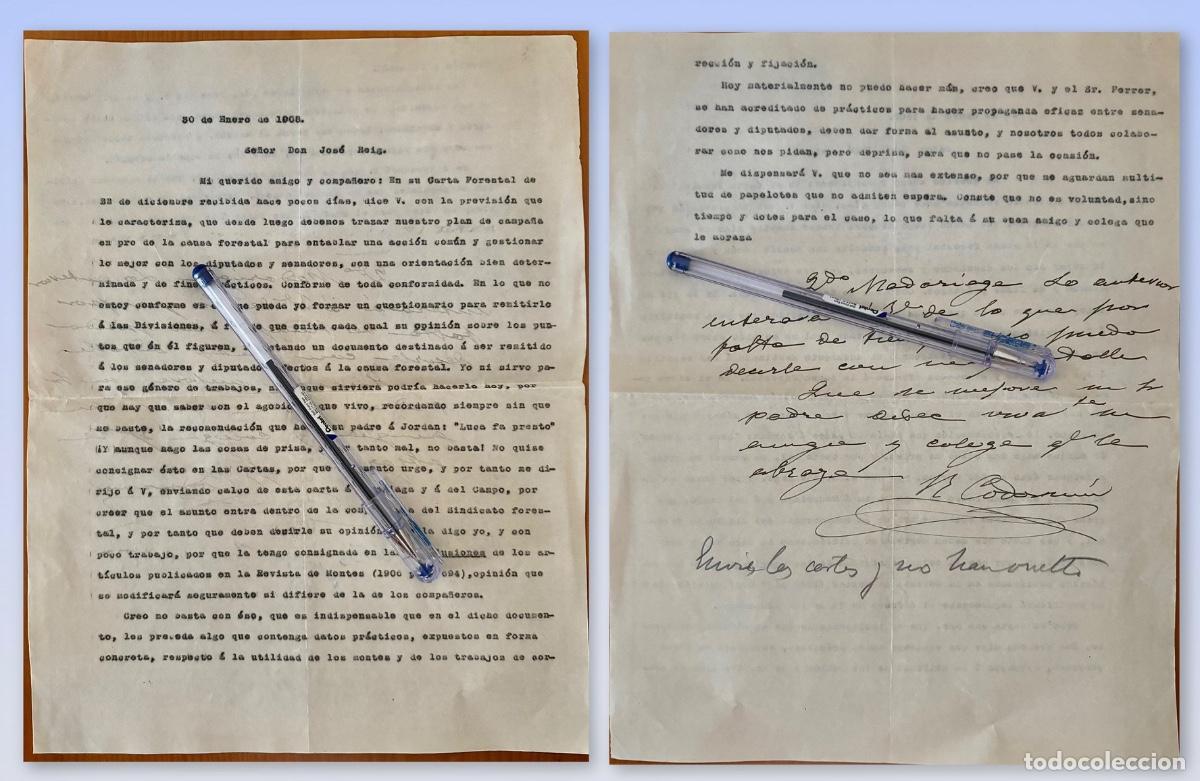 30 de Enero de 1908.
Señor Don José Reig.
Mi querido amigo y compañero: En su Carta Forestal de
22 de diciembre recibida hace pocos días, dice V. con la previsión que
le caracteriza, que desde luego debemos trazar nuestro plan de campaña
en pro de la causa forestal para entablar una acción común y gestionar
lo mejor con los diputados y senadores, con una orientación bien deter-
minada y de fines prácticos. Conforme de toda conformidad. En lo que no
estoy conforme es que pueda yo formar un cuestionario para remitirlo
á las Divisiones, á que emita cada cual su opinión sobre los pun-
tos que én él figuren, un documento destinado á ser remitido
á los senadores y diputados afectos á la causa forestal. Yo ni sirvo pa-
ra ese género de trabajos, que sirviera podría hacerlo hoy, por
que hay que saber con el agobio que vivo, recordando siempre sin que
me baste, la recomendación que su padre á Jordan: "Luca fa presto"
¡Y aunque hago las cosas de prisa, tanto mal, no basta! No quise
consignar ésto en las Cartas, por que urge, y por tanto me di-
rijo á V, enviando calco de esta carta á y á del Campo, por
creer que el asunto entra dentro de la del Sindicato fores-
tal, y por tanto que deben decirle su opinión la digo yo, y con
poco trabajo, por que la tengo consignada en las de los ar-
tículos publicados en la Revista de Montes (1906 694),opinión que
se modificará seguramente si difiere de la de los compañeros.
Creo no basta con éso, que es indispensable que en el dicho documen-
to, les preceda algo que contenga datos prácticos, expuestos en forma
concreta, respecto á la utilidad de los montes y de los trabajos de cor-
rección y fijación.
Hoy materialmente no puedo hacer más, creo que V. y el Sr. Ferrer,
se han acreditado de prácticos para hacer propaganda eficaz entre sena-
dores y diputados, deben dar forma al asunto, y nosotros todos colabo-
rar como nos pidan, pero deprisa, para que no pase la ocasión.
Me dispensará V. que no sea mas extenso, por que me aguardan multi-
tud de papelotes que no admiten espera. Conste que no es voluntad,sino
tiempo y dotes para el caso, lo que falta á su buen amigo y colega que
le abraza
Qdo Madariaga Lo anterior
de lo que por
falta de no puedo
decirle con detalle
Que se mejore su
padre desea su
amigo y colega q. le
abraza
R Codorniu
todocoleccion